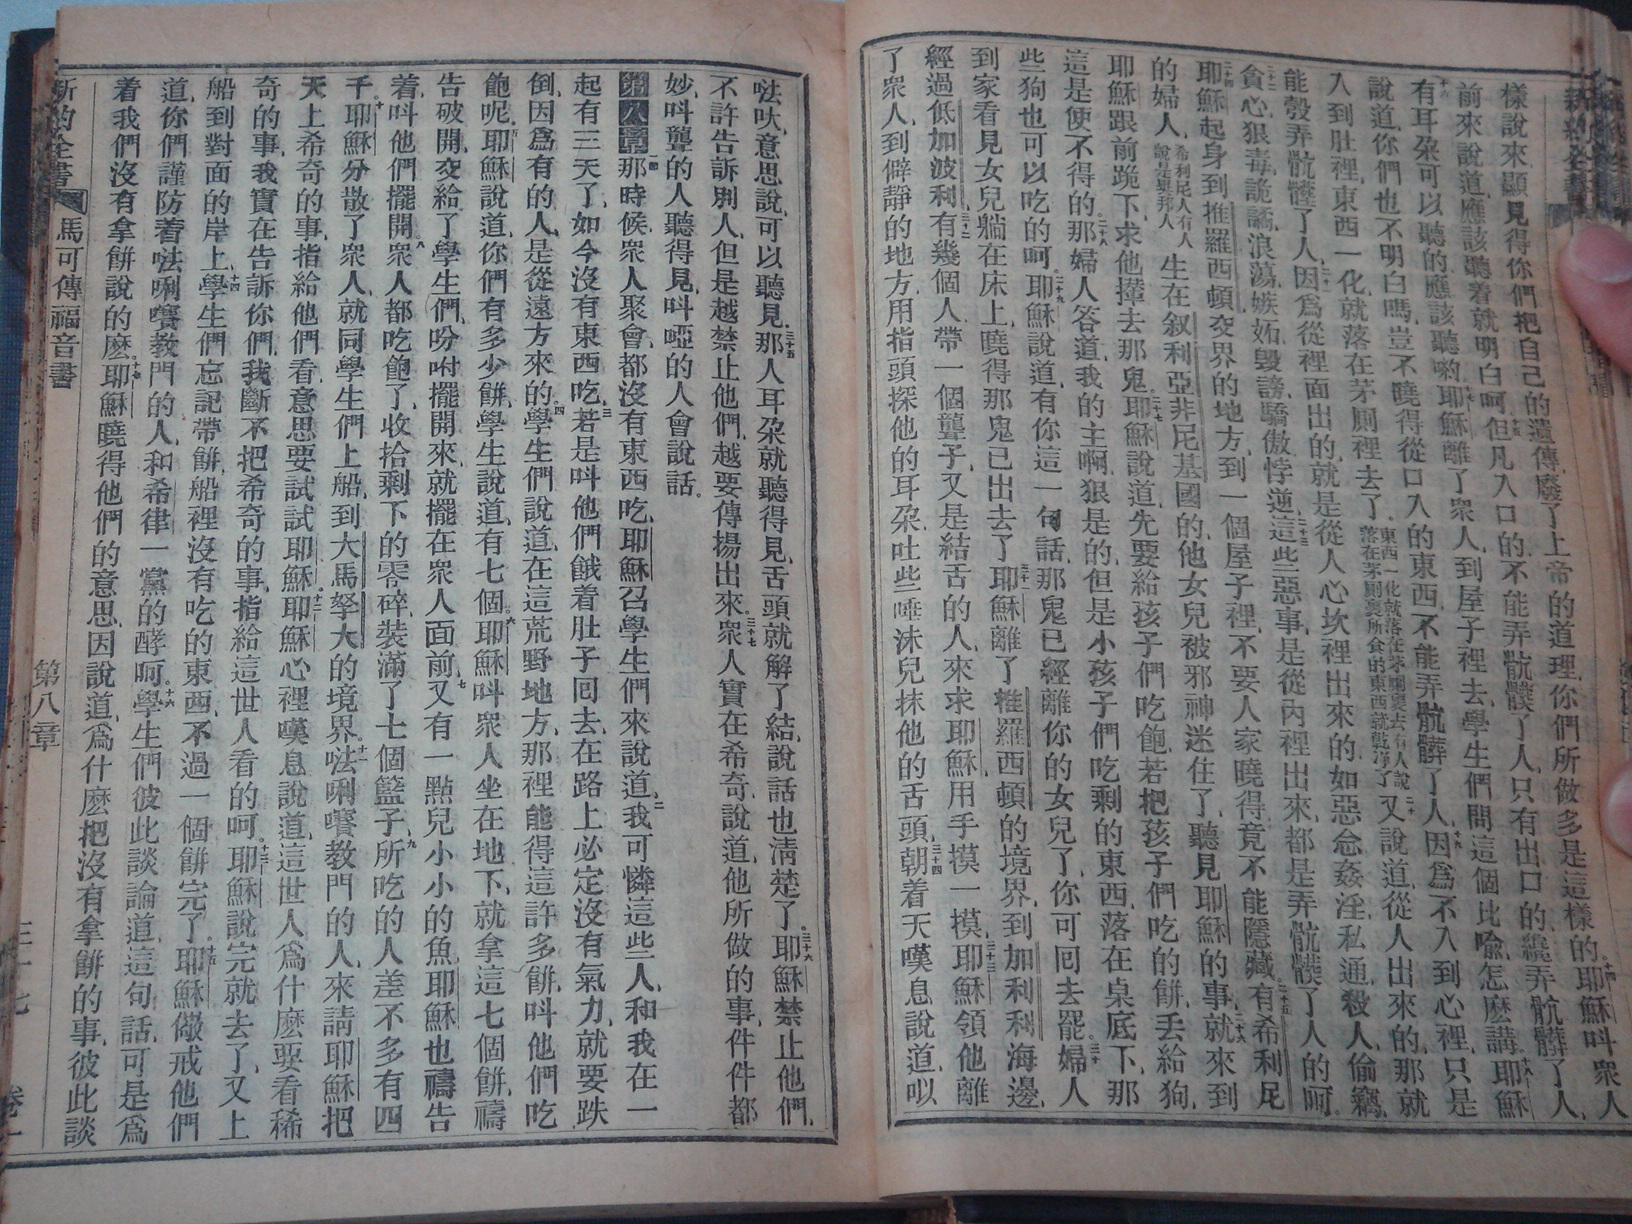 樣說來顯見得你們把自己的遺傳廢了上帝的道理你們所做多是這樣的十四耶穌呌衆人
前來說道應該聽着就明白呵十五但凡入口的不能弄骯髒了人只有出口的纔弄骯髒了人
十六有耳朶可以聽的應該聽喲十七耶穌離了衆人到屋子裡去學生們問這個比喩怎麽講十八耶穌
說道你們也不明白嗎豈不曉得從口入的東西不能弄骯髒了人十九因爲不入到心裡只是
入到肚裡東西一化就落在茅厠裡去了二十又說道從人出來的那就
能彀弄骯髒了人二十一因爲從裡面出的就是從人心坎裡出來的如惡念姦淫私通殺人偷竊
二十二貪心狠毒詭譎浪蕩嫉妬毀謗驕傲悖逆二十三這些惡事是從內裡出來都是弄骯髒了人的呵
二十四耶穌起身到推羅西頓交界的地方到一個屋子裡不要人家曉得竟不能隱藏二十五有希利尼
的婦人希利尼人有人說是異邦人生在叙利亞非尼基國的他女兒被邪神迷住了聽見耶穌的事就來到二十六
耶穌跟前跪下求他攆去那鬼二十七耶穌說道先要給孩子們吃飽若把孩子們吃的餅丢給狗
這是使不得的二十八那婦人答道我的主啊狠是的但是小孩子們吃剩的東西落在桌底下那
些狗也可以吃的呵二十九耶穌說道有你這一句話那鬼已經離你的女兒了你可囘去罷三十婦人
到家看見女兒躺在床上曉得那鬼已出去了三十一耶穌離了推羅西頓的境界到加利利海邊
經過低加波利三十二有幾個人帶一個聾子又是結舌的人來求耶穌用手摸一摸三十三耶穌領他離
了衆人到僻靜的地方用指頭探他的耳朶吐些唾沫兒抹他的舌頭三十四朝着天嘆息說道㕥
㕵吠意思說可以聽見三十五那人耳朶就聽得見舌頭就解了結說話也淸楚了三十六耶穌禁止他們
不許告訴別人但是越禁止他們越要傳揚出來三十七衆人實在希奇說道他所做的事件件都
妙呌聾的人聽得見呌啞的人會說話
第八章一那時候衆人聚會都沒有東西吃耶穌召學生們來說道二我可憐這些人和我在一
起有三天了如今沒有東西吃三若是呌他們餓着肚子囘去在路上必定沒有氣力就要跌
倒因爲有的人是從遠方來的四學生們說道在這荒野地方那裡能得這許多餅呌他們吃
飽呢五耶穌說道你們有多少餅學生說道有七個六耶穌呌衆人坐在地下就拿這七個餅禱
告破開交給了學生們吩咐擺開來就擺在衆人面前七又有一點兒小小的魚耶穌也禱告
着呌他們擺開八衆人都吃飽了收拾剩下的零碎裝滿了七個籃子九所吃的人差不多有四
千十耶穌分散了衆人就同學生們上船到大馬拏大的境界十一㕵唎㘔教門的人來請耶穌把
天上希奇的事指給他們看意思要試試耶穌十二耶穌心裡嘆息說道這世人爲什麽要看稀
奇的事我實在告訴你們我斷不把希奇的事指給這世人看的呵十三耶穌說完就去了又上
船到對面的岸上十四學生們忘記帶餅船裡沒有吃的東西不過一個餅完了十五耶穌儆戒他們
道你們謹防着㕵唎㘔教門的人和希律一黨的酵呵十六學生們彼此談論道這句話可是爲
着我們沒有拿餅說的麽十七耶穌曉得他們的意思因說道爲什麽把沒有拿餅的事彼此談
新約全書 馬可傳福音書 第八章 三十七